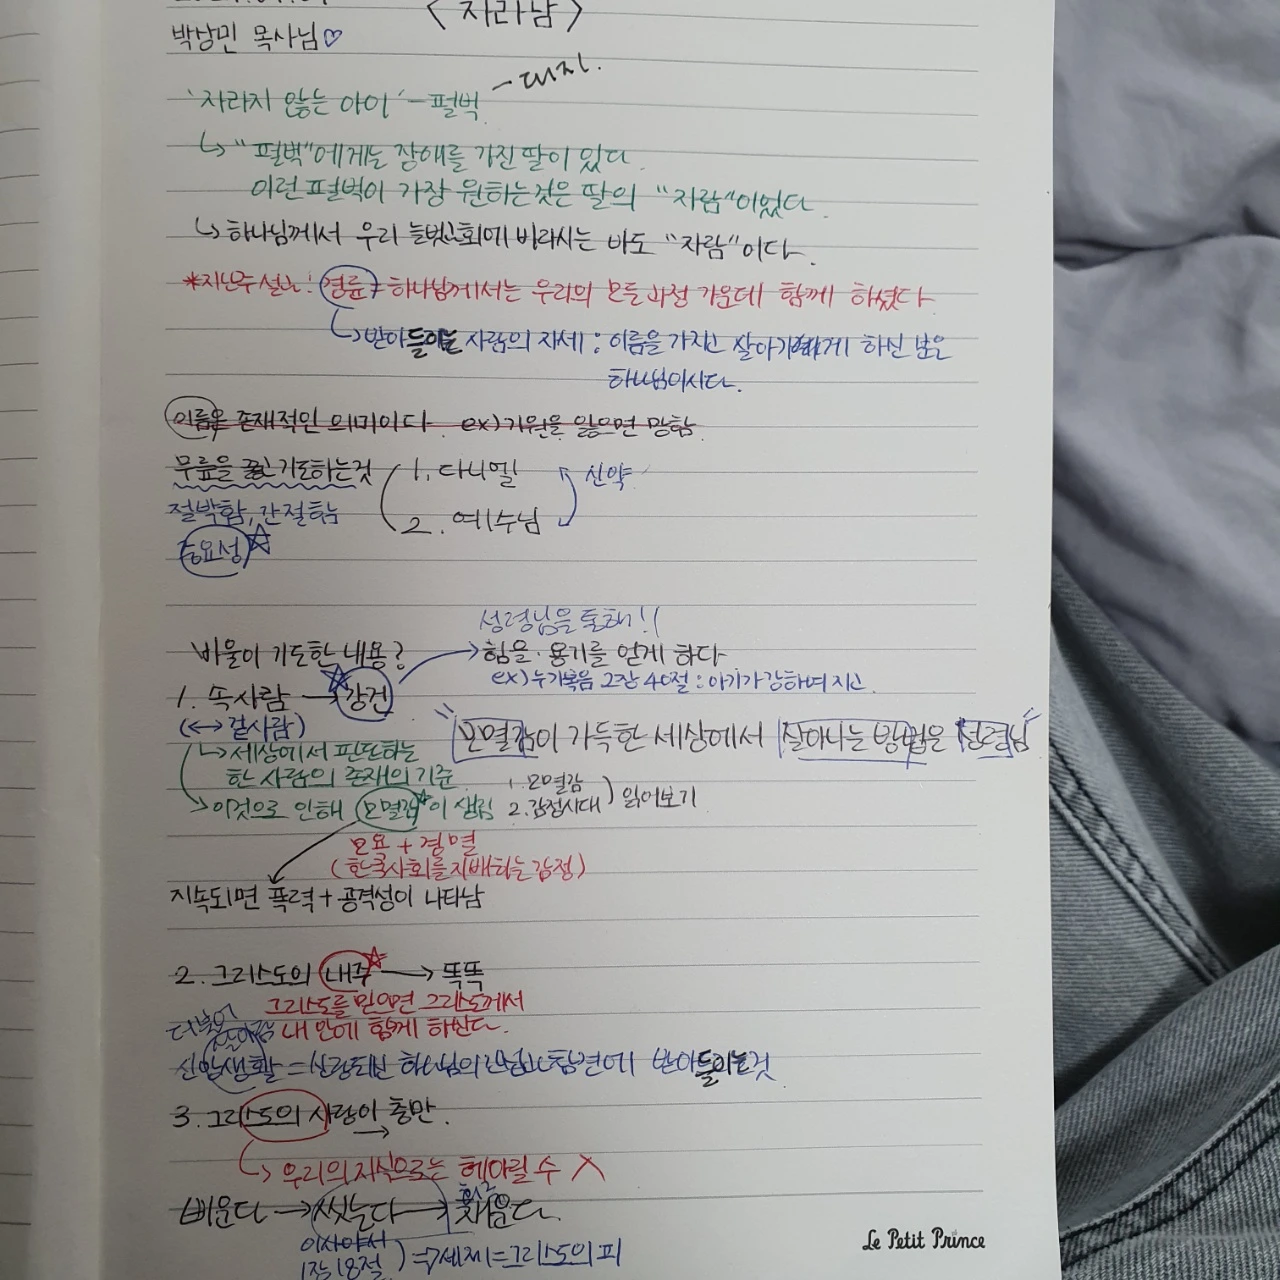 <자라남>
박상민 목사님♡
'자라지 않는 아이' - 펄벅 - 대지.
↳ "펄벅"에게는 장애를 가진 딸이 있다.
이런 펄벅이 가장 원하는것은 딸의 "자람"이었다.
↳ 하나님께서 우리 늘벗교회에 바라시는 바도 "자람"이다.
*지난주 설교! 경륜 → 하나님께서는 우리의 모든 과정 가운데 함께 하셨다
↳ 받아들이는 사람의 자세 : 이름을 가지고 살아가게 하신 분은
하나님이시다.
이름은 존재적인 의미이다. ex) 기원을 잃으면 망함.
무릎을 꿇고 기도하는것 ( 1. 다니엘 신약
절박함, 간절함 2. 예수님
중요성☆
성령님을 통해!!
바울이 기도한 내용? → 힘을·용기를 얻게 하다
ex) 누가복음 2장 40절 : 아기가 강하여 지고.
1. 속사람 → 강건☆
(↔ 겉사람) "모멸감이 가득한 세상에서 살아나는 방법은 성령님"
↳ 세상에서 판단하는
한 사람의 존재의 기준. 1. 모멸감
→ 이것으로 인해 모멸감☆이 생김 2. 감정시대 ) 읽어보기
모욕 + 경멸
(한국사회를 지배하는 감정)
지속되면 폭력 + 공격성이 나타남
2. 그리스도의 내주☆ → 똑똑
그리스도를 믿으면 그리스도께서
더불어 살아감 내 안에 함께 하신다.
신앙생활 = 하나님의 받아들이는것
3. 그리스도의 사랑이 충만.
↳ 우리의 지식으로는 헤아릴 수 X
비운다 → 씻는다 → 채운다.
이사야서
1장 18절 ) ⇒ 세제 = 그리스도의 피
Le Petit Prince